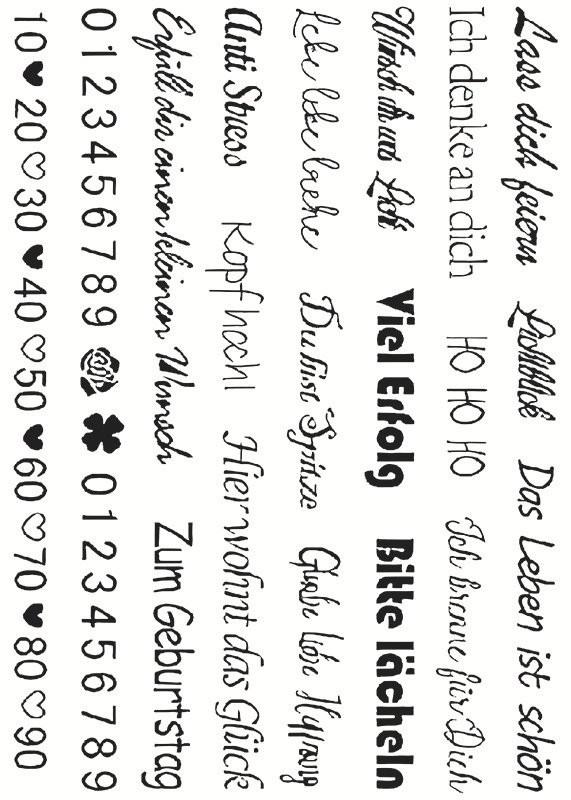 Lass dich feiern Lichtblick Das Leben ist schön
Ich denke an dich HO HO HO Ich brenne für Dich
Wünsch dir was Licht Viel Erfolg Bitte lächeln
Lebe liebe lache Du bist Spitze Glaube Liebe Hoffnung
Anti Stress Kopf hoch! Hier wohnt das Glück
Erfüll dir einen kleinen Wunsch Zum Geburtstag
0 1 2 3 4 5 6 7 8 9 0 1 2 3 4 5 6 7 8 9
10 ♥ 20 ♡ 30 ♥ 40 ♡ 50 ♥ 60 ♡ 70 ♥ 80 ♡ 90